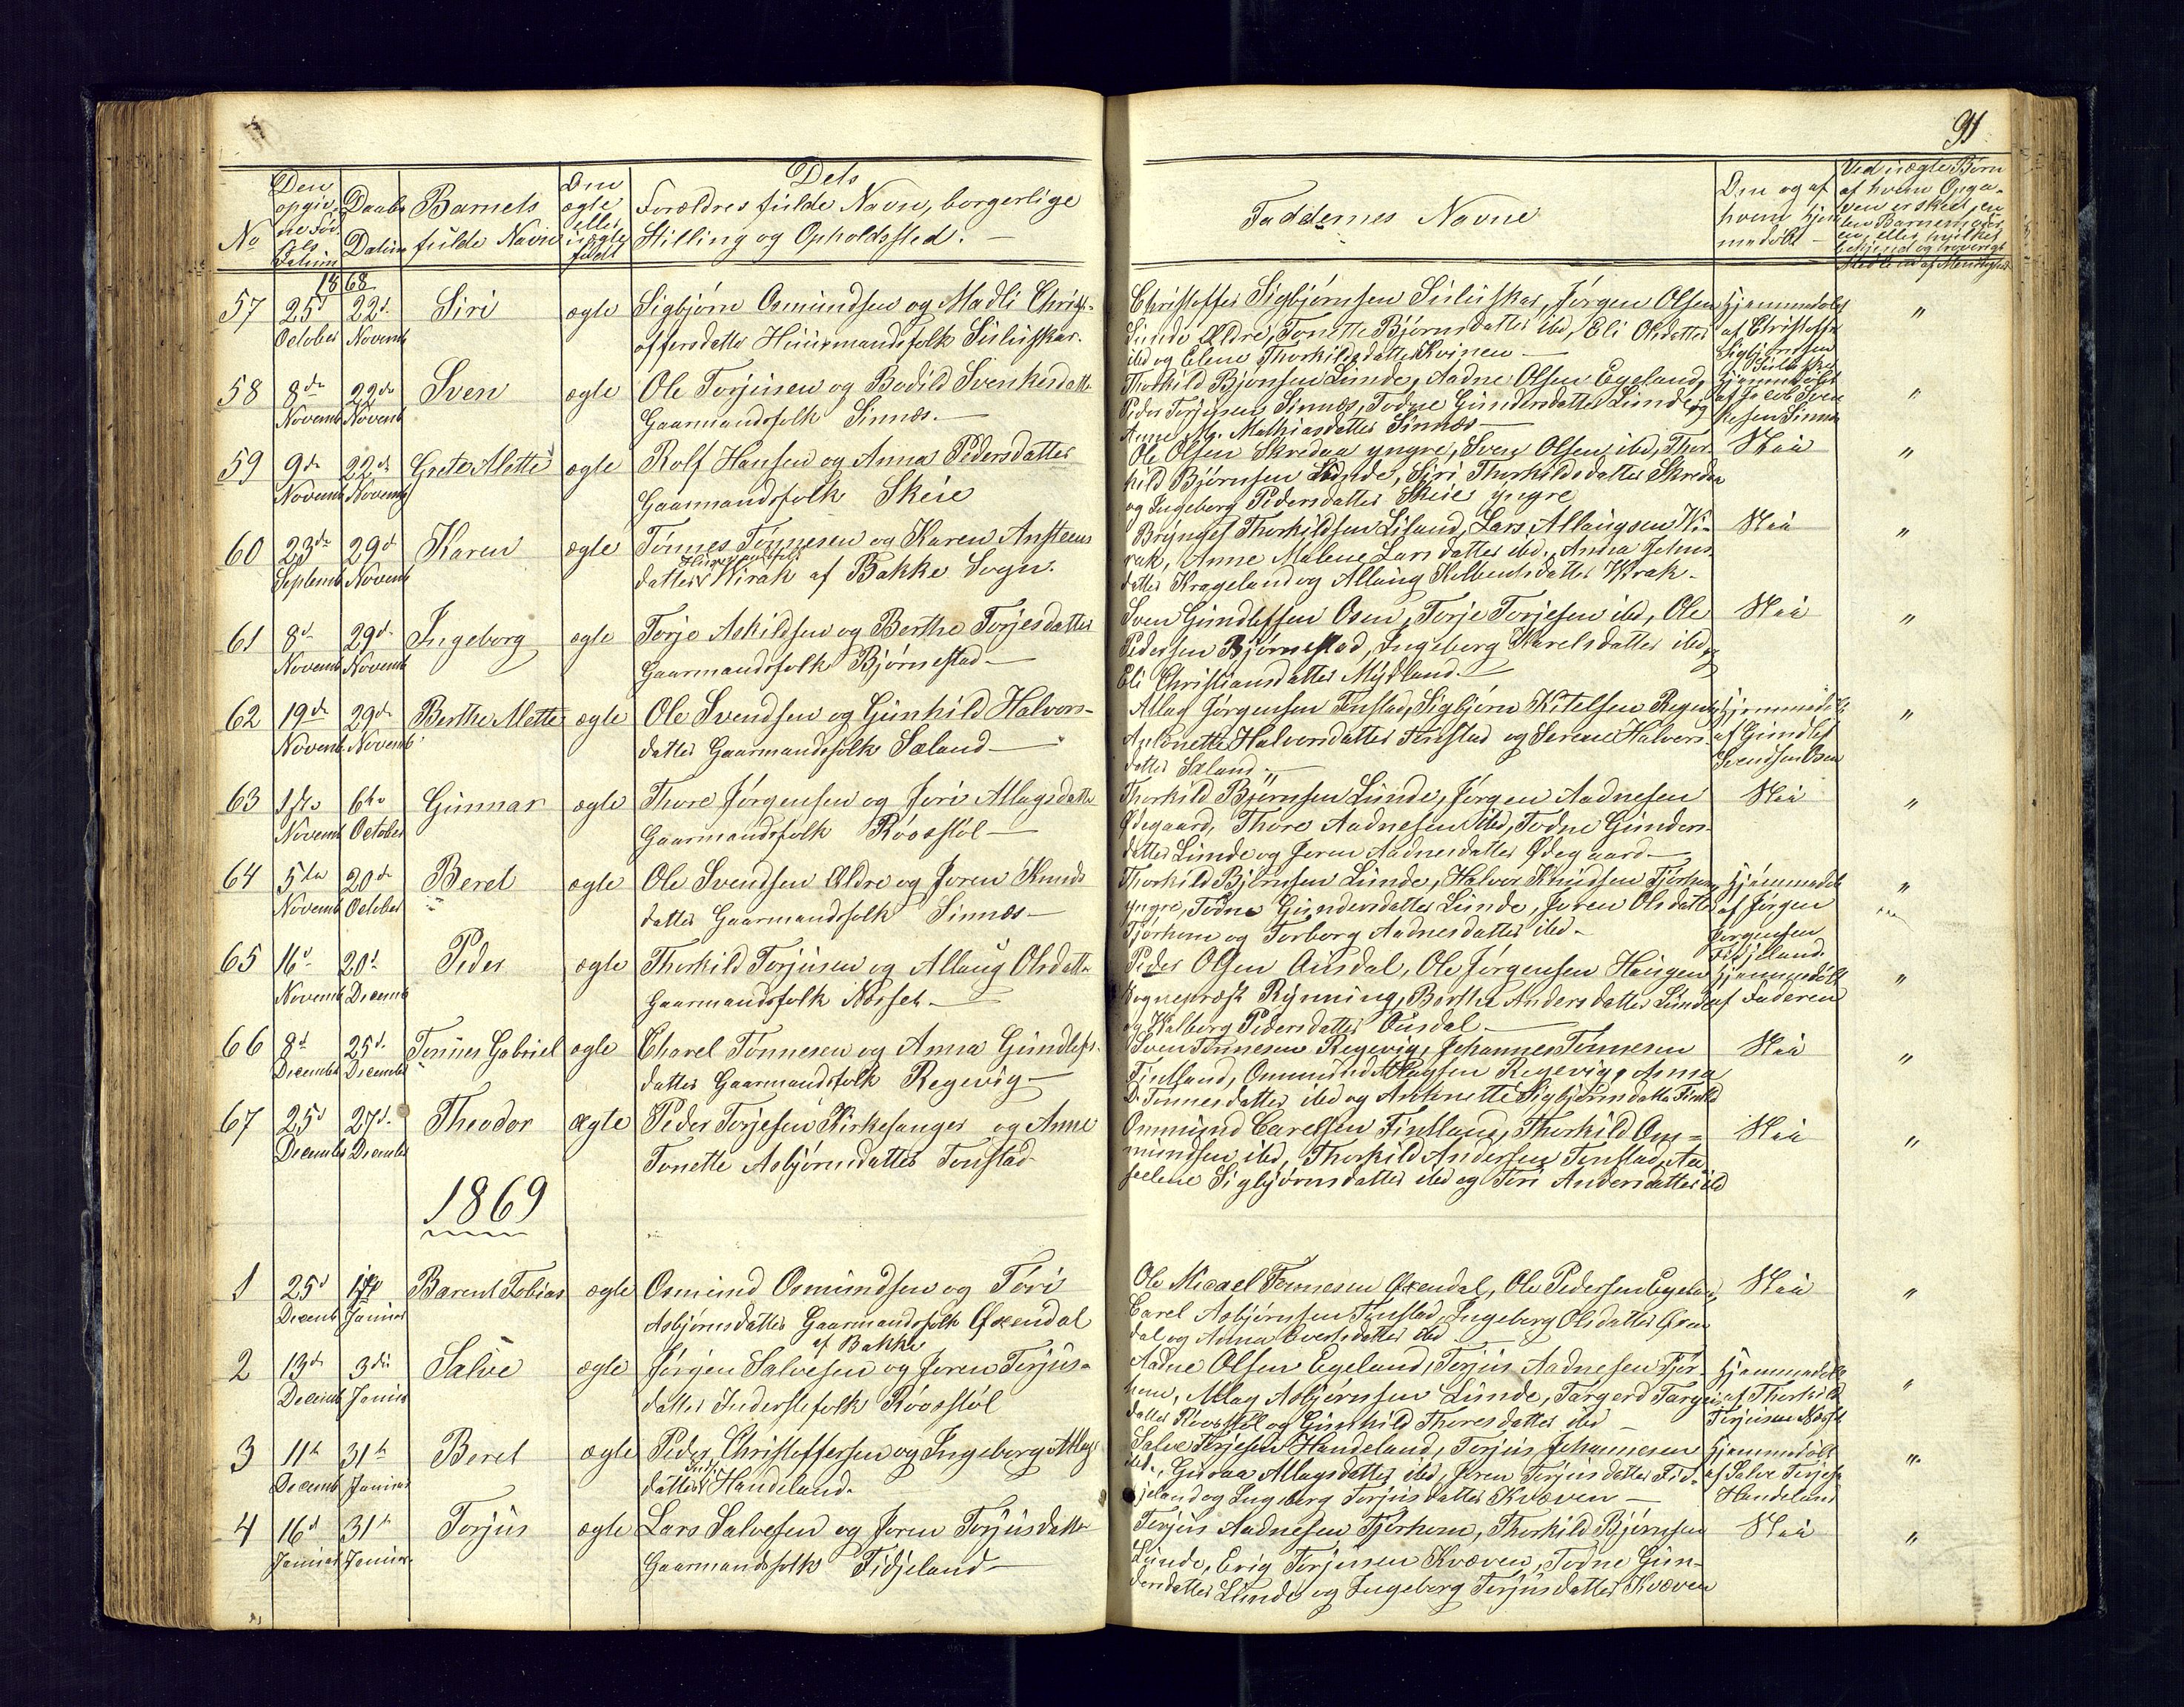 91
No
Den opgivne Fødsels Datum
Daabs Datum
Barnets fulde Navn
Om ægte eller uægte født
Dets Forældres fulde Navn, borgerlige Stilling og Opholdssted.
Faddernes Navne
Om og af hvem hjemmedøbt
Ved uægte Børn af hvem Opgaven er skeet, en
1868
57 25d October 22d Novemb Siri ægte
Sigbjørn Osmundsen og Madli Christ-
offersdatter Huusmandsfolk Suluskar.
Christoffer Sigbjørnsen Suluskar, Jørgen Olsen
Lunde Ældre, Tonette Bjørnsdatter ibd, Eli Olsdatter
ibd og Elene Thorkildsdatter Kvinen
Hjemmedøbt af Christoffer Sigbjørnsen Suluskar
"
58 8de Novemb 22de Novemb Sven ægte
Ole Torjusen og Bodild Svenkesdatter
Gaarmandsfolk Sinnes.
Thorkild Bjørnsen Lunde, Aadne Olsen Egeland,
Peder Torjusen Sinnes, Todne Gundersdatter Lunde og
Anne M. Mathiasdatter Sinnes
Hjemmedøbt af Jacob Svenkesen Sinnes
"
59 9de Novemb 22de Novemb Grete Mette ægte
Rolf Hansen og Anna Pedersdatter
Gaarmandsfolk Skeie
Ole Olsen Skredaa yngre, Sven Olsen ibd, Thor-
kild Bjørnsen Lunde, Siri Thorkildsdatter Skredaa
og Ingeborg Pedersdatter Skeie yngre
Nei
"
60 23de Septemb 29d Novemb Karen ægte
Tønnes Tønnesen og Karen Ansteens
datter Huusmandsfolk Virak af Bakke Sogn.
Bryngel Thorkildsen Liland, Lars Allaugsen Vi-
rak, Anne Malene Larsdatter ibd. Andrea Johns
datter Krageland og Allaug Kolbentsdatter Virak.
Nei
"
61 8d Novemb 29d Novemb Ingeborg ægte
Torje Askildsen og Berthe Torjesdatter
Gaarmandsfolk Bjørnestad
Sven Gundleffsen Osen, Torje Torjesen ibd, Ole
Pedersen Bjørnestad, Ingeborg Karelsdatter ibd og
Eli Christiansdatter Mydland.
Nei
"
62 19de Novemb 29de Novemb Berthe Mette ægte
Ole Svendsen og Gunhild Halvors-
datter Gaarmandsfolk Sæland
Atlag Jørgensen Tonstad, Sigbjørn Kitelsen Regevig
Antonette Halvorsdatter Tonstad og Serene Halvors-
datter Sæland
Hjemmedøbt af Gundlef Svendsen Osen
"
63 1ste Novemb 6te October Gunnar ægte
Thore Jørgensen og Jori Atlagsdatter
Gaarmandsfolk Roosstøl
Thorkild Bjørnsen Lunde, Jørgen Aadnesen
Ødegaard, Thore Aadnesen ibd, Todne Gunders-
datter Lunde og Joren Aadnesdatter Ødegaard
Nei
"
64 5te Novemb 20de October Beret ægte
Ole Svendsen Ældre og Joren Knuds
datter Gaarmandsfolk Sinnes
Thorkild Bjørnsen Lunde, Halvor Knudsen Tjørhom
yngre, Todne Gundersdatter Lunde, Joren Olsdatter
Tjørhom og Torborg Aadnesdatter ibd
Hjemmedøbt af Jørgen Jørgensen Fidjeland
"
65 16d Novemb 20d Decemb Peder ægte
Thorkild Torjusen og Allaug Olsdatter
Gaarmandsfolk Nesset.
Peder Olsen Ousdal, Ole Jørgensen Haugen
Sognepræst Rynning, Berthe Andersdatter Lunde
og Valborg Pedersdatter Ousdal
Hjemmedøbt af Faderen
"
66 8d December 25d December Tønnes Gabriel ægte
Charel Tønnesen og Anna Gundlefs-
datter Gaarmandsfolk Regevig
Sven Tønnesen Regevig, Johannes Tønnesen
Fintland, Ommund Atlagsen Regevig, Anna
D. Tønnesdatter ibd og Antonette Sigbjørnsdatter Fintld
Nei
"
67 25d December 27d December Theodor ægte
Peder Torjesen Kirkesanger og Anne
Tonette Asbjørnsdatter Tonstad
Ommund Carelsen Fintland, Thorkild Om-
mundsen ibd, Thorkild Andersen Tonstad,
Sigbjørnsdatter ibd og Tori Andersdatter ibd
Nei
"
1869
1 25d Decemb Januar Barent Tobias ægte
Osmund Osmundsen og Tori
Asbjørnsdatter Gaarmandsfolk Øxendal
af Bakke
Ole Micael Tønnesen Øxendal, Ole Pedersen Egeland,
Carel Asbjørnsen Tonstad, Ingeborg Olsdatter Øxen
dal og Anna Evertsdatter ibd
Nei
"
2 13de Decemb 3die Januar Salve ægte
Jørgen Salvesen og Joren Torjus-
datter Inderstefolk Roosstøl
Aadne Olsen Egeland, Torjus Aadnesen Tjør-
hom, Atlag Asbjørnsen Lunde, Targerd Targeirs
datter Roosstøl og Gunhild Thoresdatter ibd
Hjemmedøbt af Thorkild Torjusen Nesset
"
3 11te Decemb 31te Januar Beret ægte
Peder Christoffersen og Ingeborg Atlags
datter Ind. Handeland.
Salve Torjesen Handeland, Torjus Johannesen
ibd., Guroa Atlagsdatter ibd, Joren Torjusdatter Fid-
jeland og Ingeborg Torjusdatter Kvæven
Hjemmedøbt af Salve Torjesen Handeland
"
4 16d Januar 31te Januar Torjus ægte
Lars Salvesen og Joren Torjusdatter
Gaarmandsfolk Fidjeland
Torjus Aadnesen Tjørhom, Thorkild Bjørnsen
Lunde, Erig Torjusen Kvæven, Todne Gun-
dersdatter Lunde og Ingeborg Torjusdatter Kvæven
Nei
"